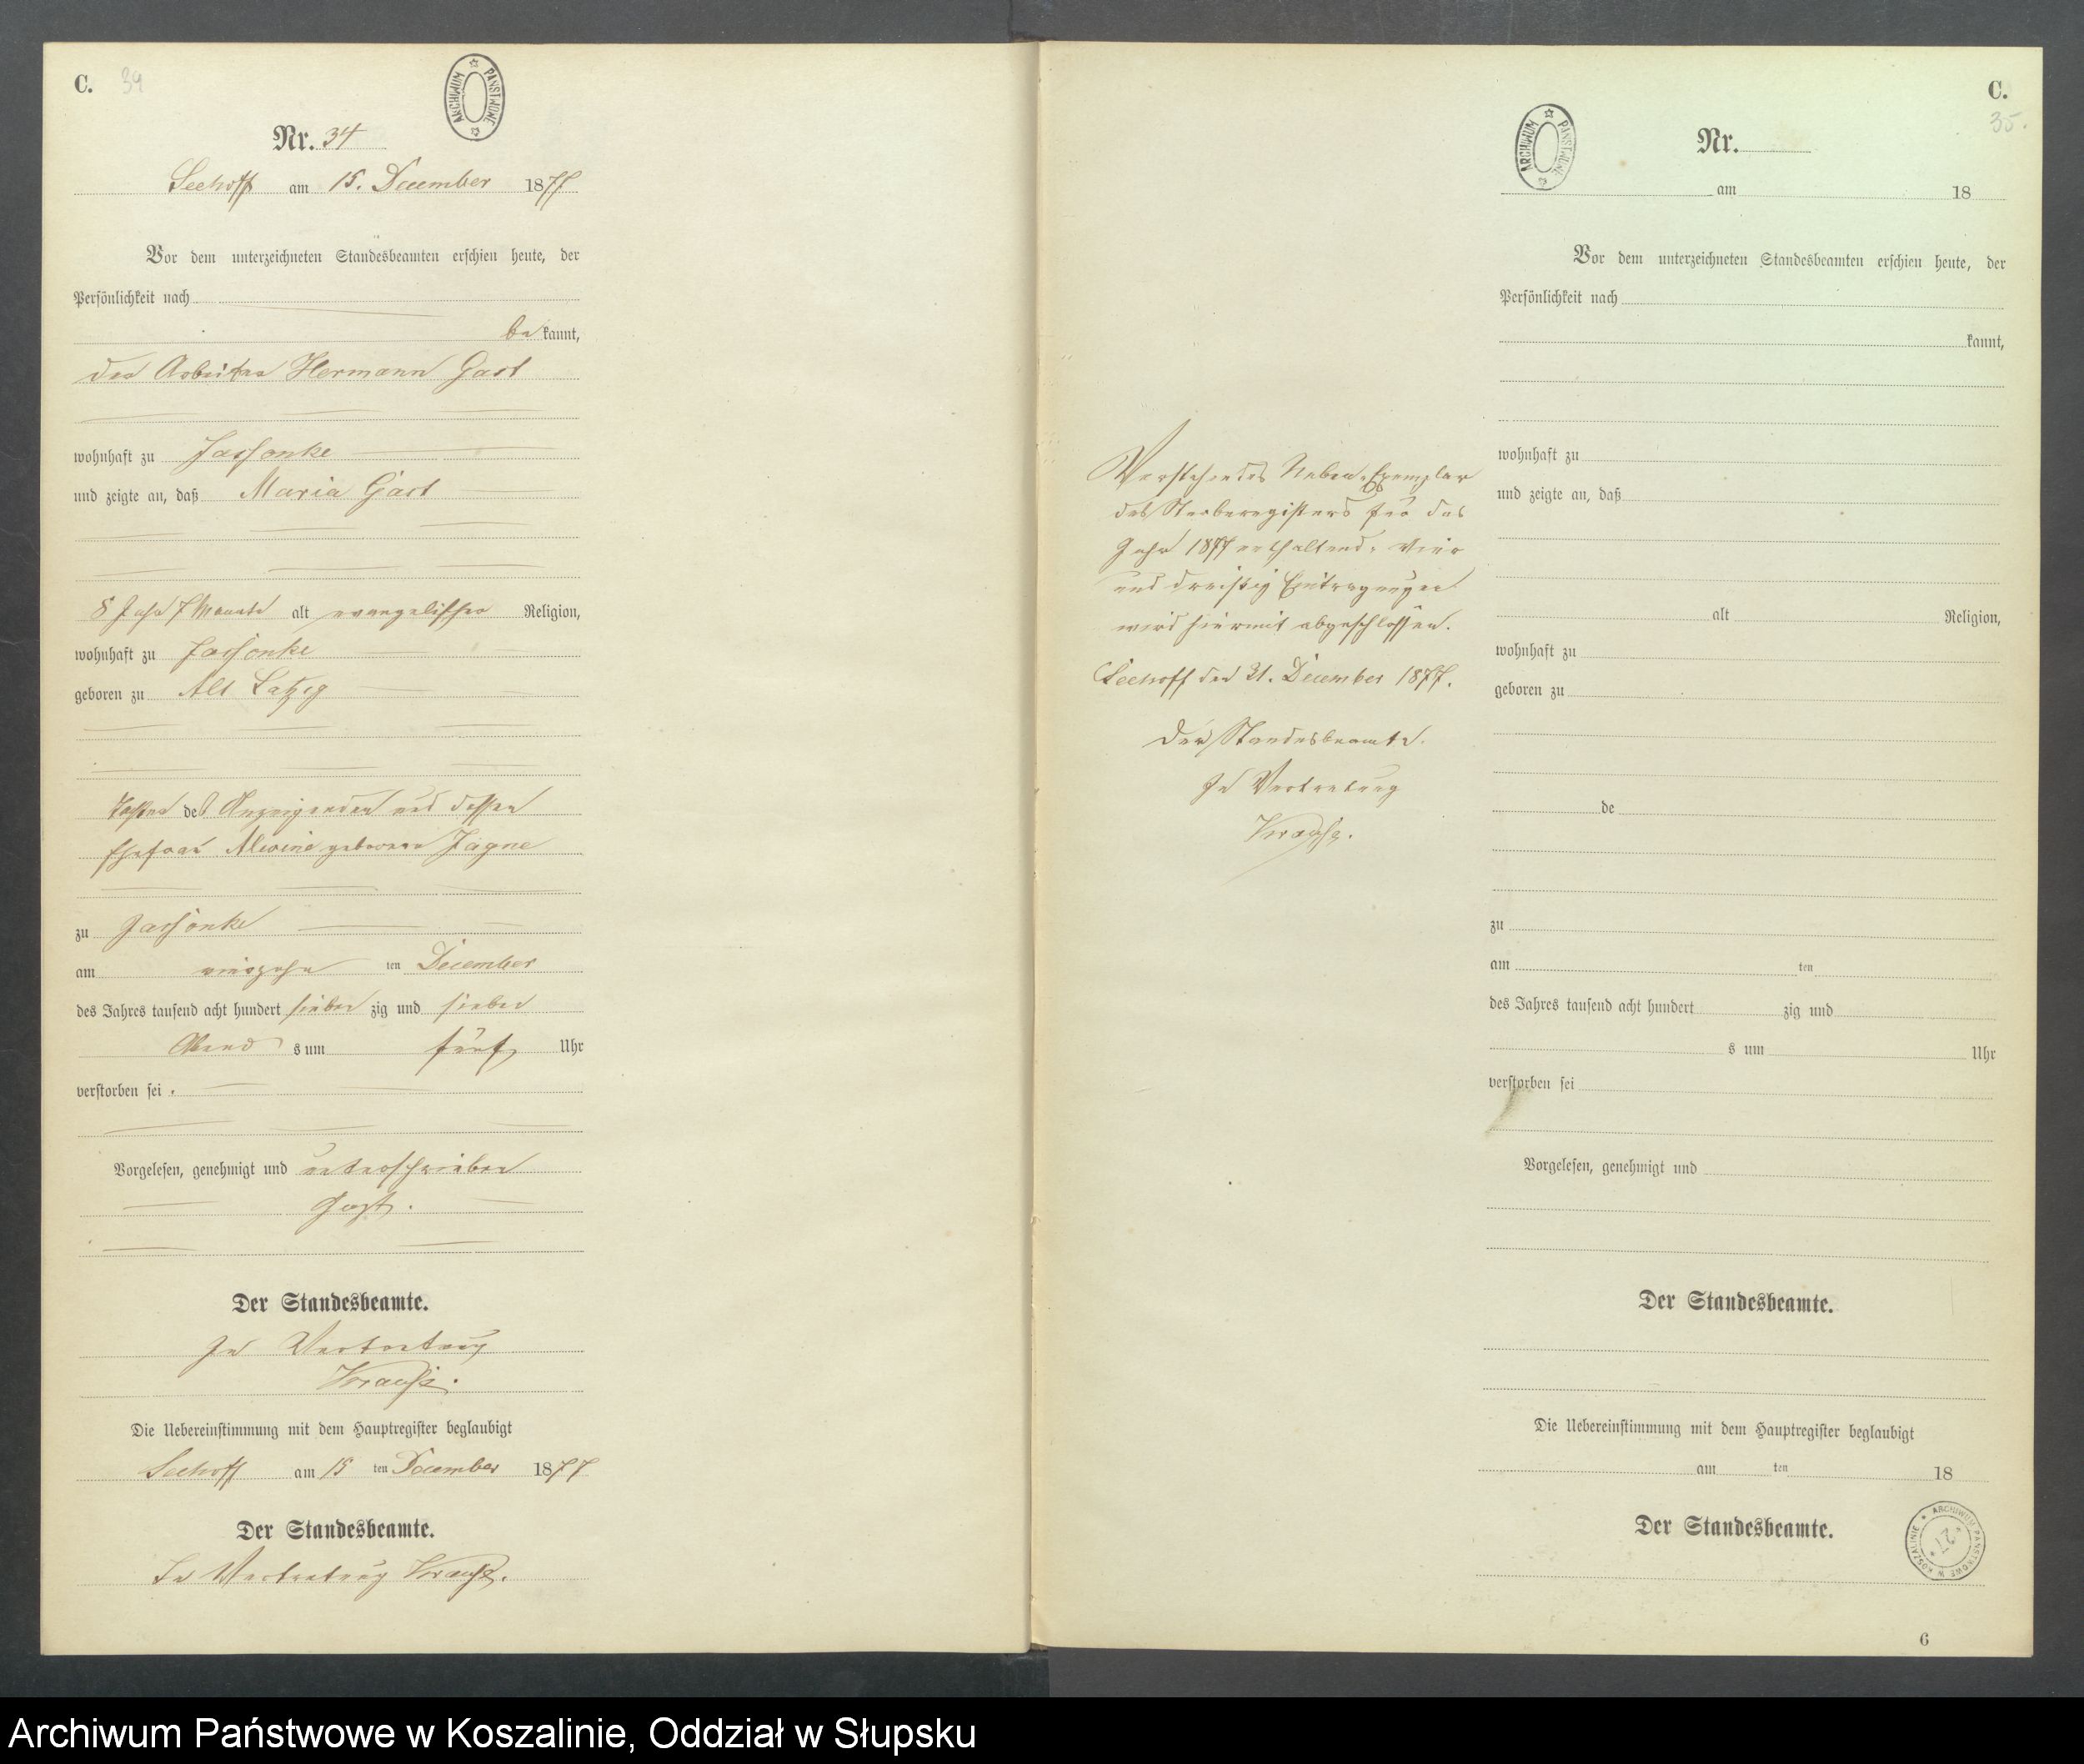 C. 34
ARCHIWUM PAŃSTWOWE
Nr. 34
Seehoff am 15. December 1877
Vor dem unterzeichneten Standesbeamten erschien heute, der
Persönlichkeit nach
bekannt,
der Arbeiter Hermann Gast
wohnhaft zu Jassonke
und zeigte an, daß Maria Gast
8 Jahr 7 Monate alt evangelischer Religion,
wohnhaft zu Jassonke
geboren zu Alt Latzig
Tochter des Anzeigenden und dessen
Ehefrau Alwine geborene Jagne
zu Jassonke
am vierzehn ten December
des Jahres tausend acht hundert sieben zig und sieben
Abend s um fünf Uhr
verstorben sei.
Vorgelesen, genehmigt und unterschrieben
Gast.
Der Standesbeamte.
In Vertretung
Krause.
Die Uebereinstimmung mit dem Hauptregister beglaubigt
Seehoff am 15 ten December 1877
Der Standesbeamte.
In Vertretung Krause.
Vorstehendes Neben-Exemplar
des Sterberegisters für das
Jahr 1877 enthaltend, vier
und dreißig Eintragungen
wird hiermit abgeschlossen.
Seehoff den 31. December 1877.
Der Standesbeamte.
In Vertretung
Krause.
C.
35.
ARCHIWUM PAŃSTWOWE
Nr.
am 18
Vor dem unterzeichneten Standesbeamten erschien heute, der
Persönlichkeit nach
kannt,
wohnhaft zu
und zeigte an, daß
alt Religion,
wohnhaft zu
geboren zu
de
zu
am ten
des Jahres tausend acht hundert zig und
s um Uhr
verstorben sei
Vorgelesen, genehmigt und
Der Standesbeamte.
Die Uebereinstimmung mit dem Hauptregister beglaubigt
am ten 18
Der Standesbeamte.
ARCHIWUM PAŃSTWOWE W KOSZALINIE
6
Archiwum Państwowe w Koszalinie, Oddział w Słupsku